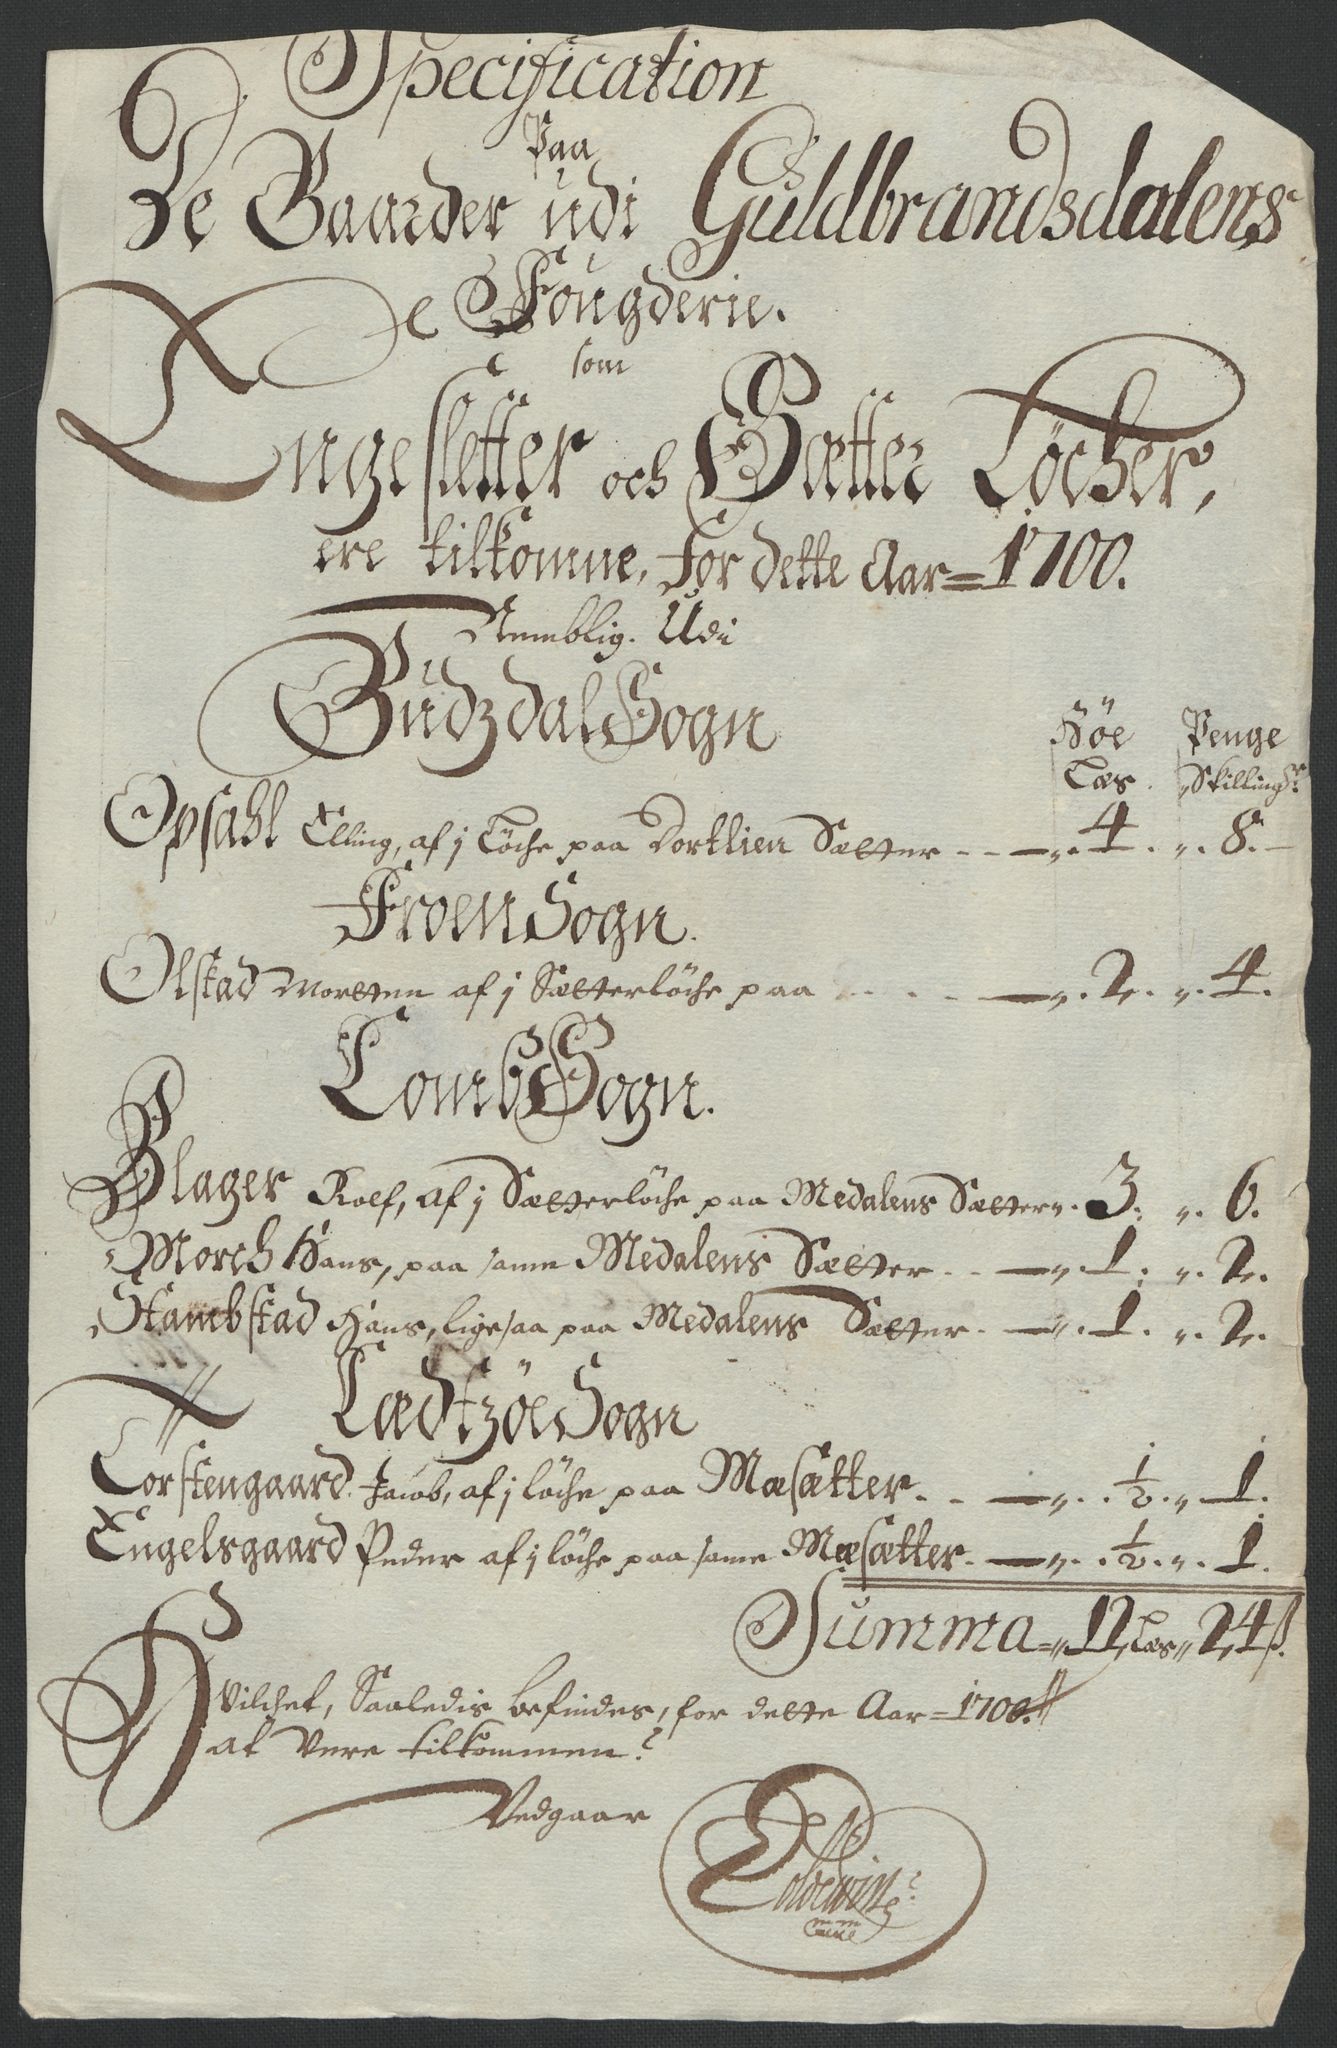 Specification
Paa
De Gaarder udi Guldbrandsdalens
Fougderie.
som
Engesletter och Sætter Løcher,
ere tilkomne, for dette Aar = 1700.
Nemblig. Udi
Budzdal Sogn
Høe Penge
Læs. Skilling
Opsahl Elling, af j Løche paa Dortlien Sætter - - 4. 8.
Froen Sogn.
Olstad Morten af j Sætterløche paa - - 2. 4.
Lomb Sogn.
Blager Rolf, af j Sætterløche paa Medalens Sætter 3. 6.
Morch Hans, paa same Medalens Sætter - - 1. 2.
Stambstad Hans, ligesaa paa Medalens Sætter - 1. 2.
Lædtzøe Sogn
Torstengaard Jacob, af j løche paa Mæsætter - - ½. 1.
Engelsgaard Peder af j løche paa same Mæsætter - ½. 1.
Summa = 12 Læs 24 ß.
Hvilchet, Saaledis befindes, for dette Aar = 1700.
at Vere tilkommen?
Vedgaar